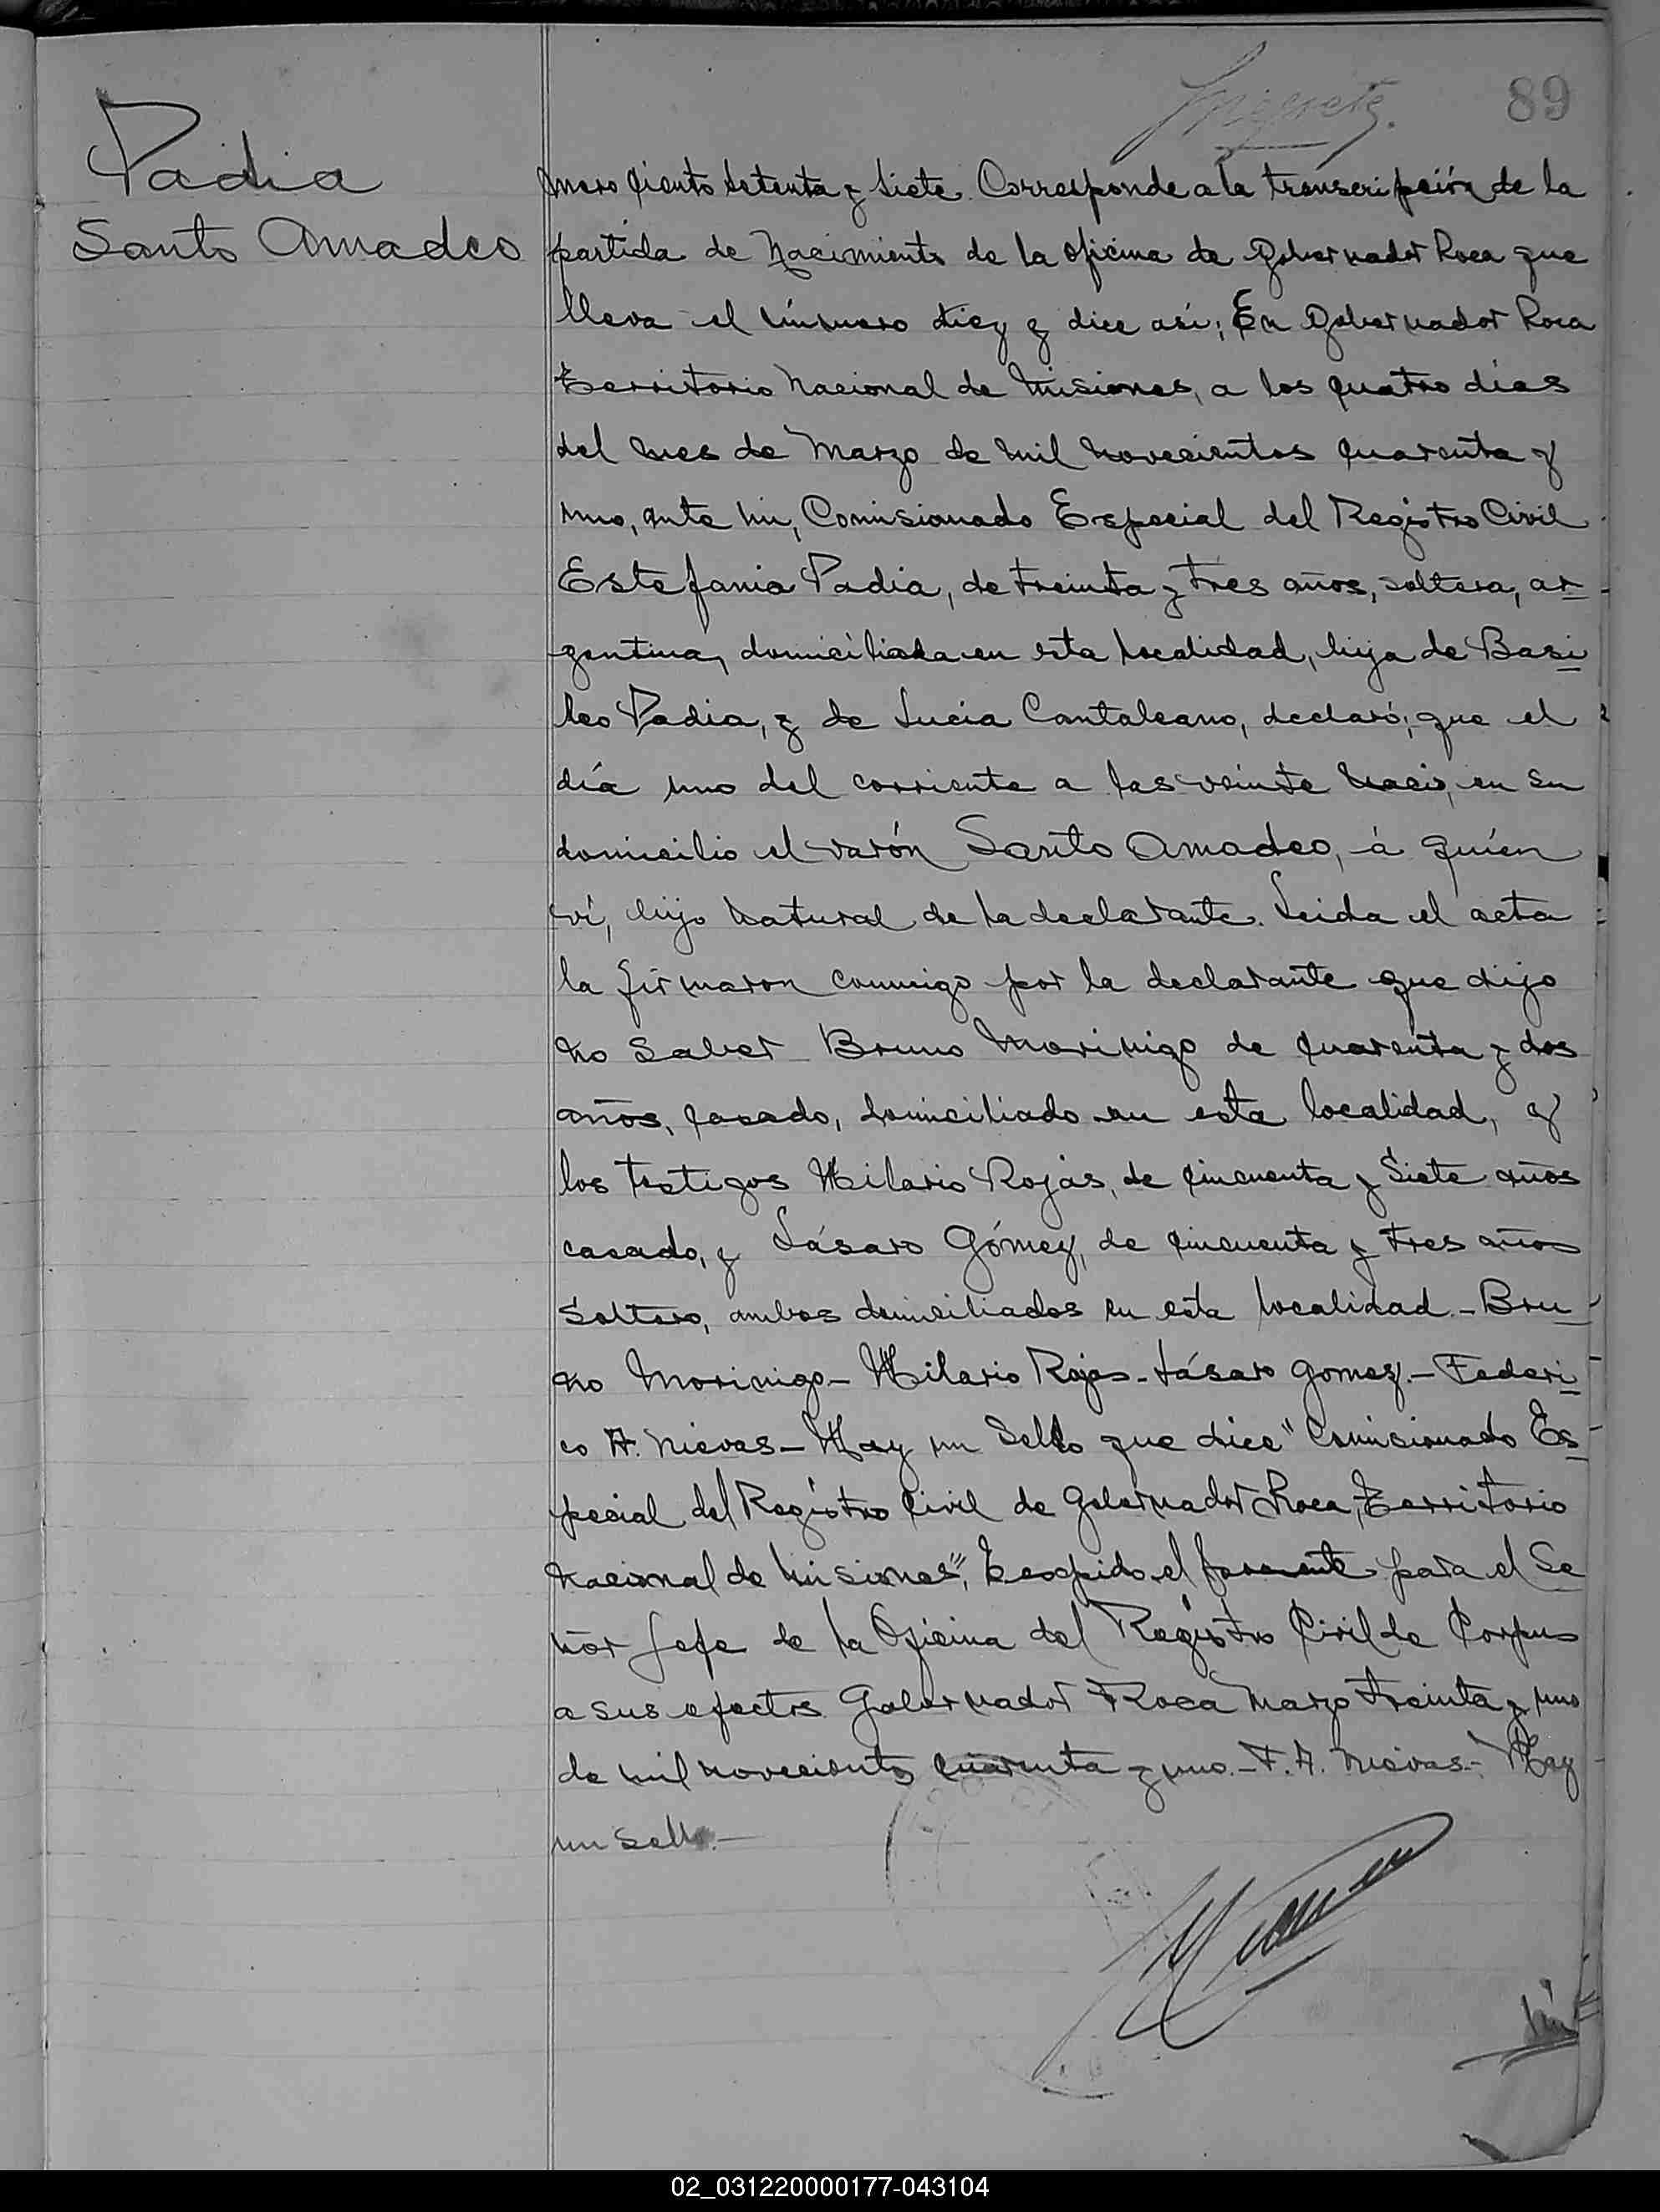 89
Padia
Santo Amadeo
mero ciento setenta y siete. Corresponde a la transcripción de la
partida de Nacimiento de la oficina de Gobernador Roca que
lleva el número diez y dice asi; En Gobernador Roca
Territorio Nacional de Misiones, a los cuatro días
del mes de Marzo de mil novecientos cuarenta y
uno, ante mi, Comisionado Especial del Registro Civil
Estefania Padia, de treinta y tres años, soltera, ar-
gentina, domiciliada en esta localidad, hija de Basi
leo Padia, y de Lucia Cantaleano, declaró; que el
día uno del corriente a las veinte nació, en su
domicilio el varón Santo Amadeo, á quien
ví, hijo natural de la declarante. Leida el acta
la firmaron conmigo por la declarante que dijo
no saber Bruno Morinigo de cuarenta y dos
años, casado, domiciliado en esta localidad, y
los testigos Hilario Rojas, de cincuenta y siete años
casado, y Lásaro Gómez, de cincuenta y tres años
soltero, ambos domiciliados en esta localidad.- Bru
no Morinigo- Hilario Rojas- Lásaro Gomez.- Federi
co A. Nievas- Hay un Sello que dice "Comisionado Es
pecial del Registro Civil de Gobernador Roca, Territorio
Nacional de Misiones", Expido el presente para el Se
ñor Jefe de la Oficina del Registro Civil de Corpus
a sus efectos Gobernador Roca Marzo treinta y uno
de mil novecientos cuarenta y uno.- F. A. Nievas.- Hay
un sello.-
02_031220000177-043104